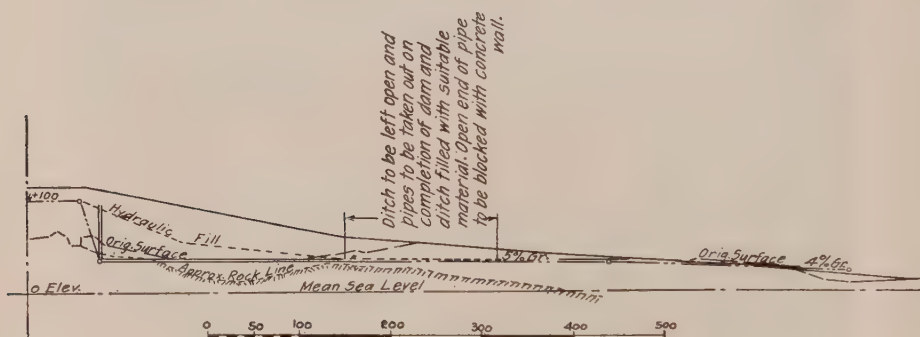 Ditch to be left open and
pipes to be taken out on
completion of dam and
ditch filled with suitable
material. Open end of pipe
to be blocked with concrete
wall.
+100
Hydraulic Fill
Orig. Surface
Approx. Rock Line
5% Gr.
Orig. Surface
4% Gr.
0 Elev.
Mean Sea Level
0 50 100 200 300 400 500